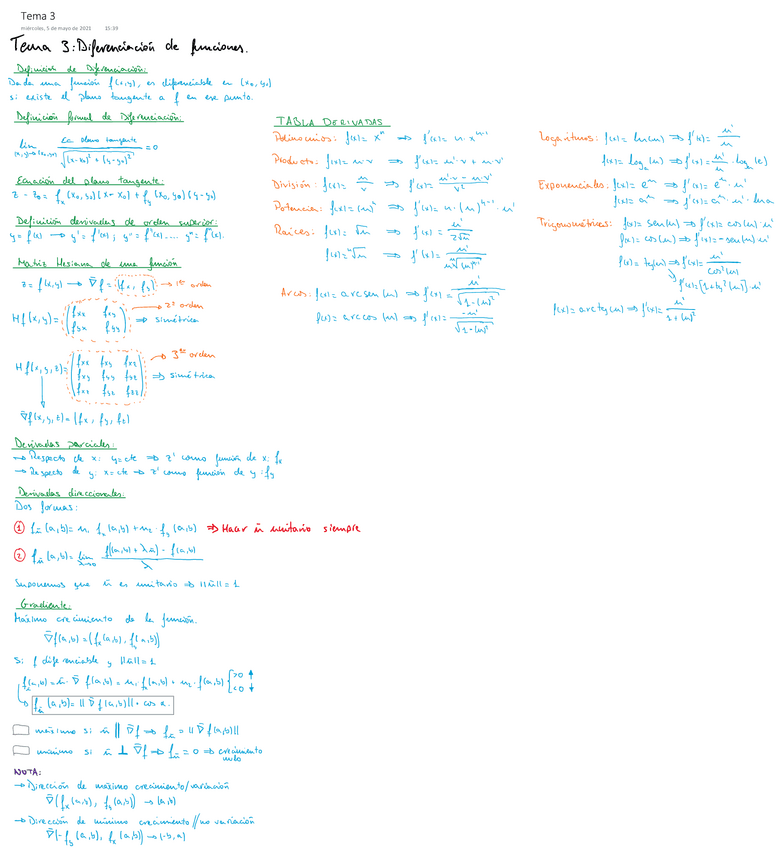 Tema 3
miércoles, 5 de mayo de 2021 15:39
Tema 3: Diferenciación de funciones.
Definición de Diferenciación:
Dada una función f(x,y), es diferenciable en (x₀, y₀)
si existe el plano tangente a f en ese punto.
Definición formal de Diferenciación:
lim (x,y)→(x₀,y₀) Ec. plano tangente / √((x-x₀)² + (y-y₀)²) = 0
Ecuación del plano tangente:
z - z₀ = fx (x₀, y₀)(x - x₀) + fy (x₀, y₀)(y - y₀)
Definición derivadas de orden superior:
y = f(x) → y' = f'(x) ; y'' = f''(x) .... yⁿ = fⁿ(x).
Matriz Hesiana de una función
z = f(x,y) → ∇f = (fx, fy) → 1er orden
Hf(x,y) = (fxx fxy / fyx fyy) ⇒ simétrica → 2º orden
Hf(x,y,z) = (fxx fxy fxz / fxy fyy fyz / fxz fyz fzz) ⇒ simétrica → 3er orden
∇f(x,y,z) = (fx, fy, fz)
Derivadas parciales:
→ Respecto de x: y = cte ⇒ z' como función de x: fx
→ Respecto de y: x = cte ⇒ z' como función de y: fy
Derivadas direccionales:
Dos formas:
① fū (a,b) = u₁ fx (a,b) + u₂ · fy (a,b) ⇒ Hacer ū unitario siempre
② fū (a,b) = lim λ→0 f((a,b) + λū) - f(a,b) / λ
Suponemos que ū es unitario ⇒ ||ū|| = 1
Gradiente:
Máximo crecimiento de la función.
∇f(a,b) = (fx (a,b), fy (a,b))
Si f diferenciable y ||ū|| = 1
fū (a,b) = ū · ∇f(a,b) = u₁ fx (a,b) + u₂ · fy (a,b) { >0 ↑ <0 ↓
fū (a,b) = ||∇f(a,b)|| · cos α.
máximo si ū || ∇f ⇒ fū = ||∇f(a,b)||
mínimo si ū ⊥ ∇f ⇒ fū = 0 ⇒ crecimiento nulo
NOTA:
→ Dirección de máximo crecimiento/variación
∇(fx (a,b), fy (a,b)) → (a,b)
→ Dirección de mínimo crecimiento // no variación
∇(-fy (a,b), fx (a,b)) → (-b, a)
TABLA DERIVADAS
Polinomios: f(x) = xⁿ ⇒ f'(x) = n · xⁿ⁻¹
Producto: f(x) = u·v ⇒ f'(x) = u'·v + u·v'
División: f(x) = u/v ⇒ f'(x) = (u'·v - u·v')/v²
Potencia: f(x) = (u)ⁿ ⇒ f'(x) = n · (u)ⁿ⁻¹ · u'
Raíces: f(x) = √u ⇒ f'(x) = u'/2√u
f(x) = ⁿ√u ⇒ f'(x) = u'/n ⁿ√(u)ⁿ⁻¹
Arcos: f(x) = arcsen (u) ⇒ f'(x) = u'/√(1-(u)²)
f(x) = arccos (u) ⇒ f'(x) = -u'/√(1-(u)²)
Logaritmos: f(x) = ln(u) ⇒ f'(x) = u'/u
f(x) = logₐ (u) ⇒ f'(x) = u'/u · logₐ (e)
Exponenciales: f(x) = eᵘ ⇒ f'(x) = eᵘ · u'
f(x) = aᵘ ⇒ f'(x) = aᵘ · u' · ln a
Trigonométricas: f(x) = sen(u) ⇒ f'(x) = cos(u) · u'
f(x) = cos(u) ⇒ f'(x) = -sen(u) · u'
f(x) = tg(u) ⇒ f'(x) = u'/cos²(u)
f'(x) = [1+tg²(u)] · u'
f(x) = arctg(u) ⇒ f'(x) = u'/1+(u)²